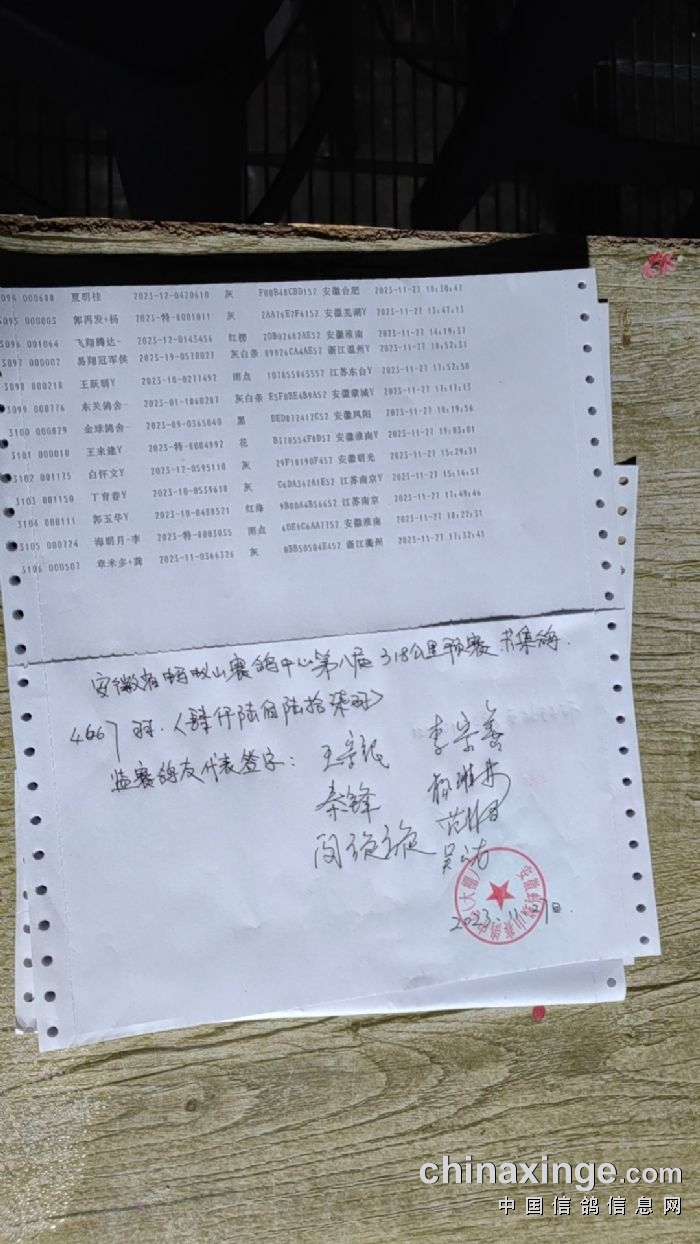 3094 000688 夏明桂 2023-12-0420610 灰 F00B48CBD152 安徽合肥 2023-11-27 18:30:43
3095 000003 郭再发+杨 2023-特-0001011 灰 2AA16E2F6152 安徽芜湖Y 2023-11-27 13:47:13
3096 001064 飞翔腾达~ 2023-12-0143456 红楞 2DB02682AE52 安徽淮南 2023-11-27 14:19:37
3097 000002 易翔冠军侯 2023-19-0570027 灰白条 89926CA4AE52 浙江温州Y 2023-11-27 18:52:31
3098 000218 王跃明Y 2023-10-0277492 雨点 107855865552 江苏东台Y 2023-11-27 17:52:50
3099 000776 东关鸽舍~ 2023-01-1860287 灰白条 E5F0BE4B9A52 安徽 2023-11-27 17:17:13
3100 000829 金球鸽舍~ 2023-09-0365040 黑 DED872412C52 安徽凤阳 2023-11-27 18:19:56
3101 000010 王来建Y 2023-特-0004992 花 B170554F8D52 安徽淮南Y 2023-11-27 19:03:01
3102 001175 白怀文Y 2023-12-0595110 灰 29F10190F452 安徽明光 2023-11-27 15:29:31
3103 001150 丁育春Y 2023-10-0539618 灰 C6DA362A1E52 江苏南京Y 2023-11-27 15:16:57
3104 000111 郭玉华Y 2023-10-0488521 红绛 9B00A4B56652 江苏南京 2023-11-27 17:49:46
3105 000724 海明月-李 2023-特-0003035 雨点 6DE9C6AA2752 安徽淮南 2023-11-27 18:22:31
3106 000507 章米多+龚 2023-11-0366326 灰 0BB50504E452 浙江衢州 2023-11-27 17:32:41
安徽省蚂蚁山赛鸽中心第八届318公里预赛 共集鸽
4667羽.〈肆仟陆佰陆拾柒羽〉
监赛鸽友代表签字: 李宗善
秦锋
2023.11.27日.
chinaxinge.com
中国信鸽信息网